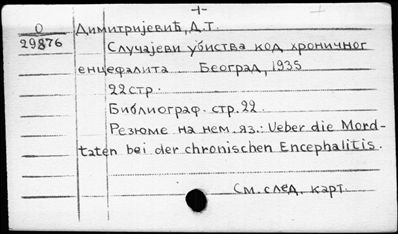 -1-
О
29876
Димитријевић, Д.Т.
Случајеви убиства код хроничног
енцефалита Београд, 1935
22 стр.
Библиограф. стр. 22.
Резюме на нем. яз.: Ueber die Mord-
taten bei der chronischen Encephalitis.
См. след. карт.